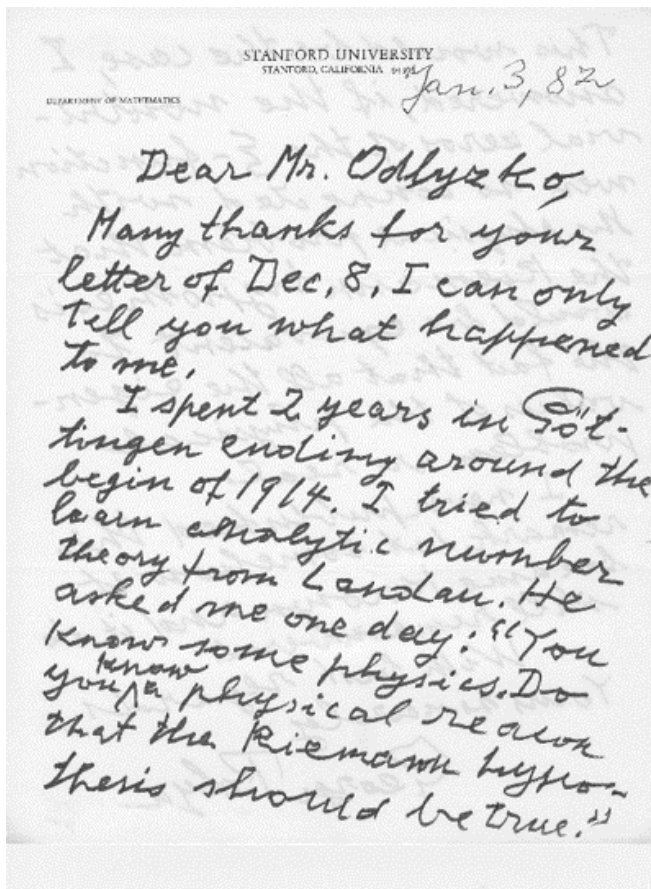 STANFORD UNIVERSITY
STANFORD, CALIFORNIA
Jan. 3, 82
DEPARTMENT OF MATHEMATICS
Dear Mr. Odlyzko,
Many thanks for your
letter of Dec. 8. I can only
tell you what happened
to me.
I spent 2 years in Göt-
tingen ending around the
begin of 1914. I tried to
learn analytic number
theory from Landau. He
asked me one day: "You
know some physics. Do
you know a physical reason
that the Riemann hypo-
thesis should be true."